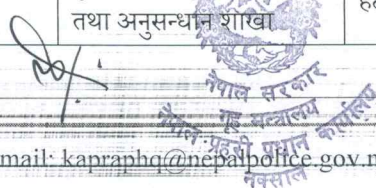 तथा अनुसन्धान शाखा
नेपाल सरकार
गृह मन्त्रालय
नेपाल प्रहरी प्रधान कार्यालय
नक्साल
mail: kapraphq@nepalpolice.gov.n